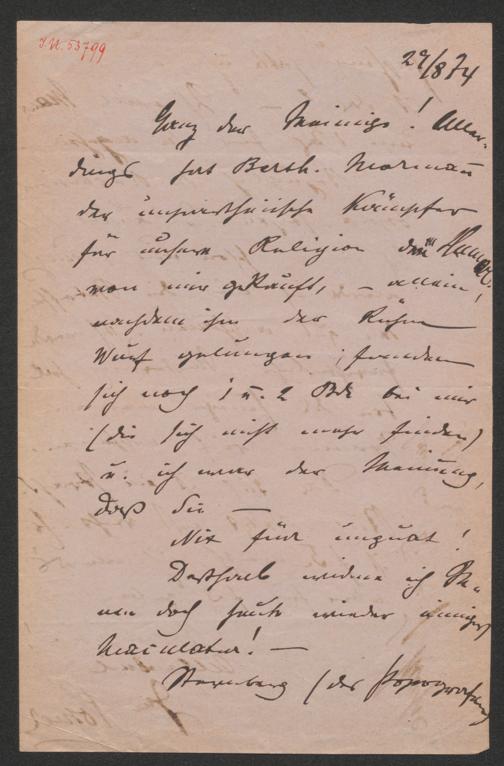 I.N. 53799
29/8 74
Ganz der Meinige! Aller-
dings hat Barth. Mormann
der unparteiische Kämpfer
für unsere Religion den
von mir gekauft, – allein!
nachdem ihm der kühne
Wurf gelungen, fanden
sich noch 1 u. 2 Bde bei mir
(die sich nicht mehr finden)
u. ich war der Meinung,
daß Sie —
Nix für ungut!
Deßhalb widme ich Ih-
nen doch heute wieder einiges
Maculatur! —
(der